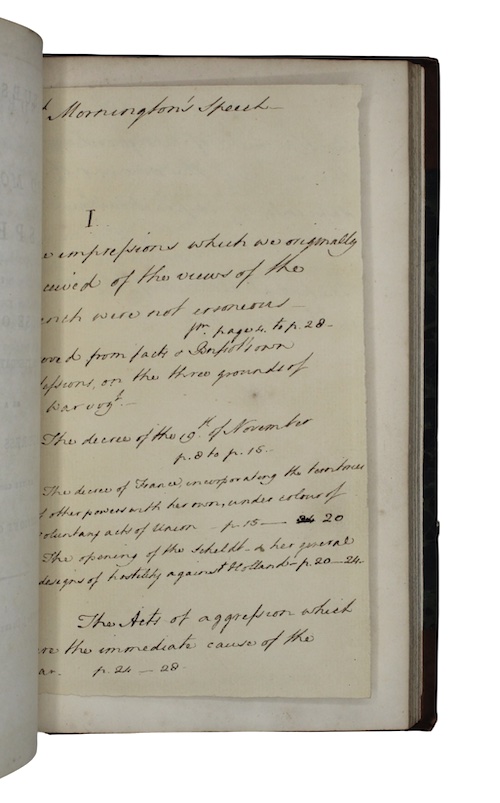 Mornington's Speech —
I
impressions which we originally
ceived of the views of the
ench were not erroneous —
fm. page 4. to p. 28 —
oved from facts & Brissot's own
fessions, on the three grounds of
War vizt. —
The decree of the 19th. of November
p. 8 to p. 15 —
The decree of France, incorporating the territories
other powers with her own, under colour of
voluntary acts of Union — p. 15 — 20
The opening of the Scheldt — & her general
designs of hostility against Holland — p. 20 — 24 —
The Acts of aggression which
the immediate cause of the
ar. p. 24 — 28 —